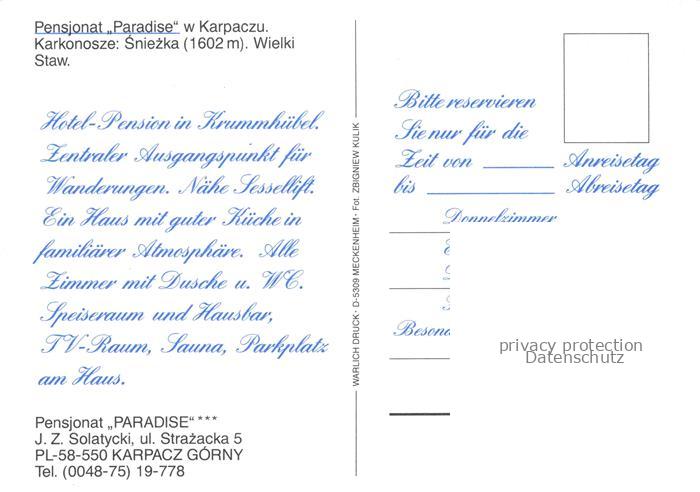 Pensjonat „Paradise“ w Karpaczu.
Karkonosze: Śnieżka (1602 m). Wielki
Staw.
Hotel-Pension in Krummhübel.
Zentraler Ausgangspunkt für
Wanderungen. Nähe Sessellift.
Ein Haus mit guter Küche in
familiärer Atmosphäre. Alle
Zimmer mit Dusche u. WC.
Speiseraum und Hausbar,
TV-Raum, Sauna, Parkplatz
am Haus.
Pensjonat „PARADISE“ ***
J. Z. Solatycki, ul. Strażacka 5
PL-58-550 KARPACZ GÓRNY
Tel. (0048-75) 19-778
WARLICH DRUCK · D-5309 MECKENHEIM · Fot. ZBIGNIEW KULIK
Bitte reservieren
Sie nur für die
Zeit von ________ Anreisetag
bis ________________ Abreisetag
Doppelzimmer
Besond
privacy protection
Datenschutz